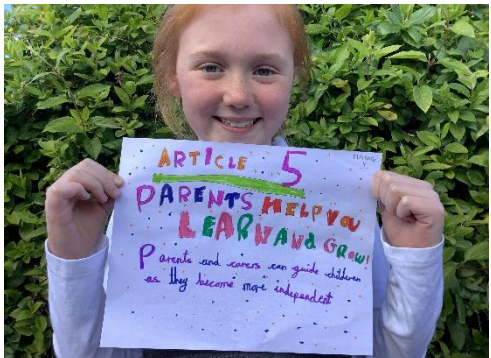 ARTICLE 5
PARENTS HELP YOU
LEARN AND GROW!
Parents and carers can guide children
as they become more independent